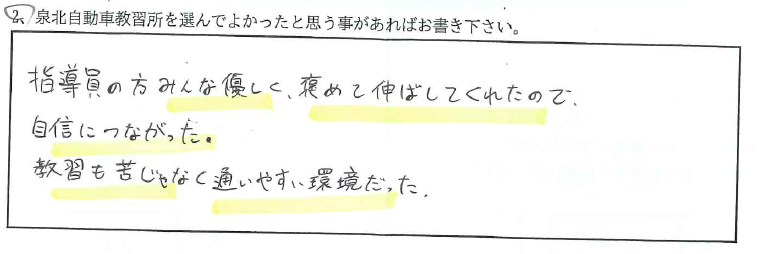 2、泉北自動車教習所を選んでよかったと思う事があればお書き下さい。
指導員の方みんな優しく、褒めて伸ばしてくれたので、
自信につながった。
教習も苦じゃなく通いやすい環境だった.